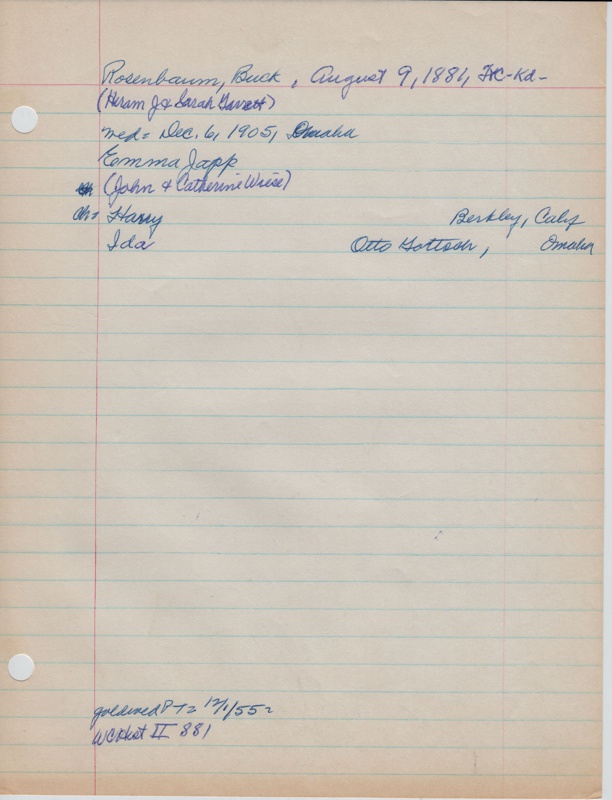 Rosenbaum, Buck, August 9, 1881, FtC-Kd-
(Hiram J & Sarah Garrett)
wed= Dec. 6, 1905, Omaha
Emma Japp
(John & Catherine Wiese)
ch= Harry Berkley, Calif
Ida Otto Gottsch, Omaha
goldwed PT= 12/1/55=
WCHist II 881